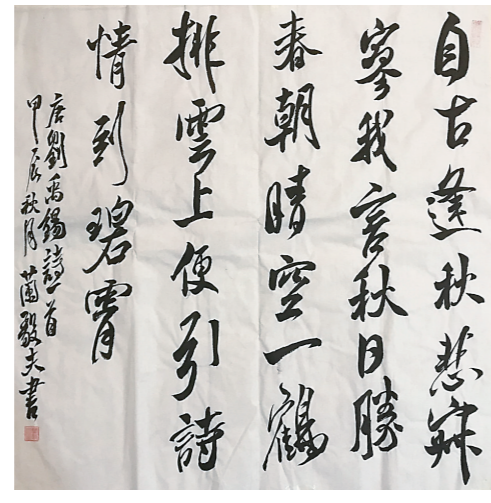 自古逢秋悲寂
寥我言秋日勝
春朝晴空一鶴
排雲上便引詩
情到碧霄
唐劉禹錫詩一首
甲辰秋月蕭毅夫書